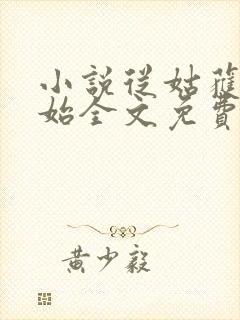 小說從姑獲
始全文免費
黃少毅